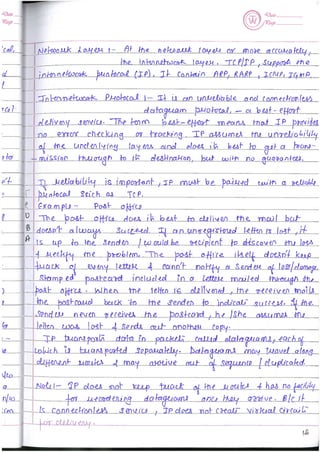 Network Layer :- At the network layer or more accurately,
the Internetwork layer. TCP/IP, support the
internetwork protocol (IP). It contain ARP, RARP, ICMP, IGMP.
Internetwork Protocol :- It is an unreliable and connectionless
datagram protocol. - a best-effort
delivery service. The term best-effort means that IP provides
no error checking or tracking. IP assumes the unreliability
of the underlying layers and does its best to get a trans-
-mission through to its destination, but with no guarantees.
If Reliability is important, IP must be paired with a reliable
protocol such as TCP.
Example - Post office
The post office does its best to deliver the mail but
doesn't always succeed. If an unregistered letter is lost, it
is up to the sender / would be recipient to discover the loss
& rectify the problem. The post office itself doesn't keep
track of every letter & cannot notify a sender of loss/damage.
Stamped postcard included in a letter mailed through the
post office. When the letter is delivered, the receiver mails
the postcard back to the sender to indicate success. If the
sender never receives the postcard, he/she assumes the
letter was lost & sends out another copy.
IP transports data in packets called datagrams, each of
which is transported separately. Datagrams may travel along
different routes & may arrive out of sequence / duplicated
Note:- IP does not keep track of the routes & has no facility
for reordering datagrams once they arrive. B/c it
is connectionless service, IP does not create virtual circuits
for delivery.